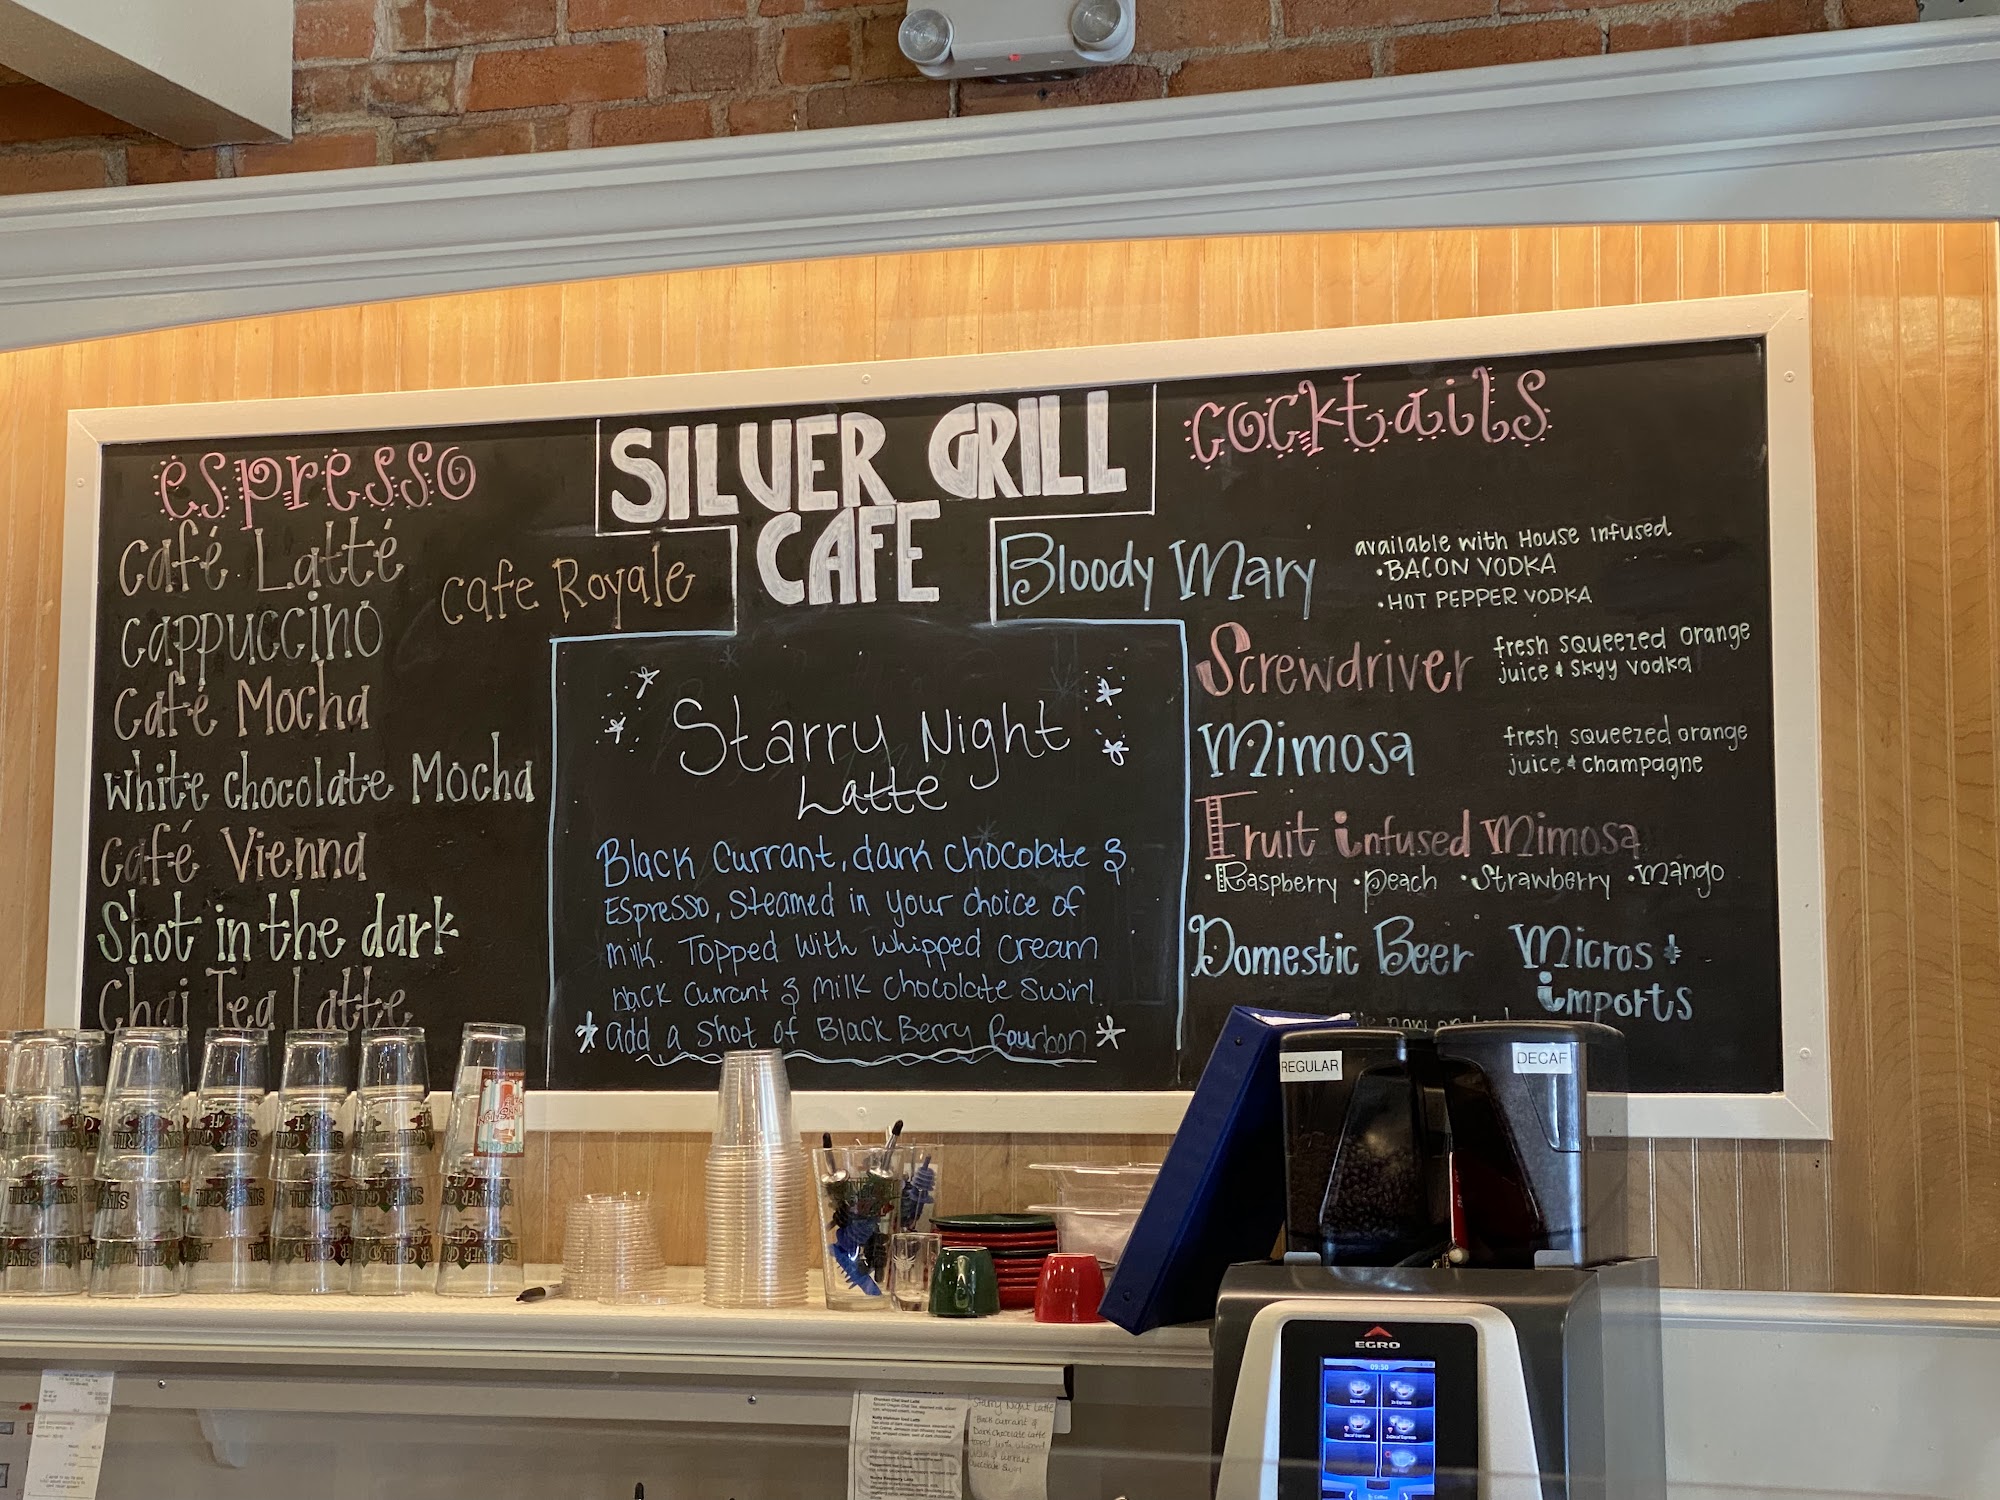 SILVER GRILL
CAFE
espresso
café Latté
cappuccino
café Mocha
white chocolate Mocha
café Vienna
Shot in the dark
Chai Tea Latte
cafe Royale
Starry Night
Latte
Black Currant, dark chocolate &
Espresso, steamed in your choice of
milk. Topped with whipped cream
black currant & milk chocolate swirl.
add a shot of Black Berry Bourbon
cocktails
Bloody Mary
available with House Infused
• BACON VODKA
• HOT PEPPER VODKA
Screwdriver
fresh squeezed orange
juice & Skyy vodka
Mimosa
fresh squeezed orange
juice & champagne
Fruit infused Mimosa
• Raspberry • Peach • Strawberry • Mango
Domestic Beer
Micros &
imports
now on
REGULAR
DECAF
EGRO
09:50
Espresso
Starry Night Latte
Black currant &
Dark chocolate Latte
topped with whipped